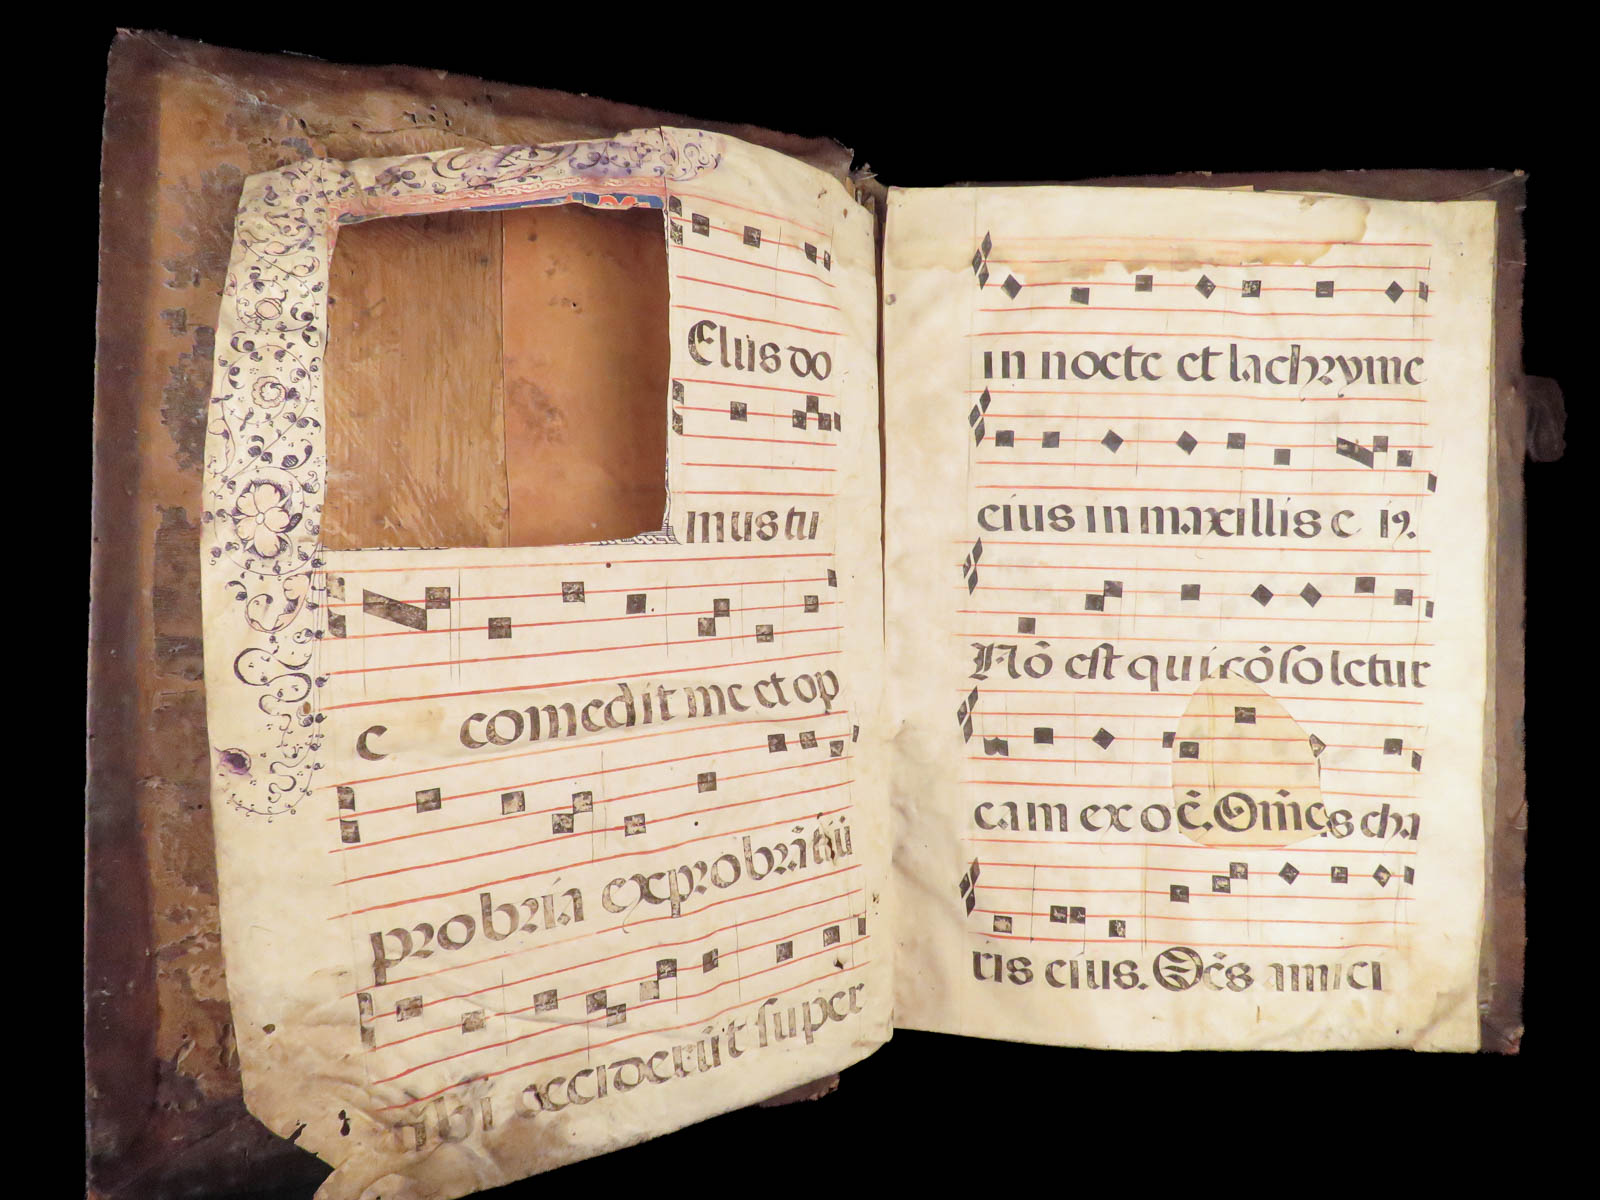 Elus do
mus tu
e comedit me et op
probria exprobrātiū
tibi ceciderūt super
in nocte et lachryme
eius in maxillis e iꝰ.
Nō est qui cōsoletur
eam ex oc̄. Om̄es cha
ris eius. Oēs amici